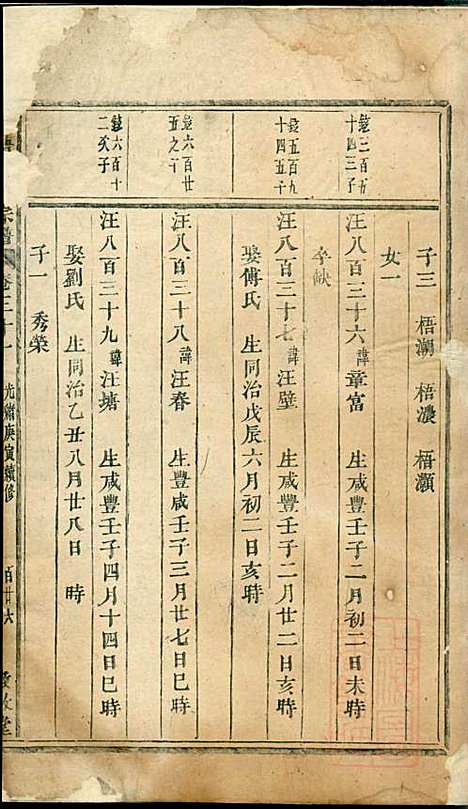 子三 梧潮 梧濃 梧灝
女一
鋕三百五
十四三子
汪八百三十六諱章富 生咸豐壬子二月初二日未時
卒缺
鋕五百九
十四五子
汪八百三十七諱汪壁 生咸豐壬子二月廿二日亥時
娶傅氏 生同治戊辰六月初二日亥時
鋕六百廿
五之子
汪八百三十八諱汪春 生豐咸壬子三月廿七日巳時
鋕六百十
二次子
汪八百三十九諱汪塘 生咸豐壬子四月十四日巳時
娶劉氏 生同治乙丑八月廿八日 時
子一 秀榮
宗譜 卷三十一 光緒庚寅續修 百廿六 敦堂